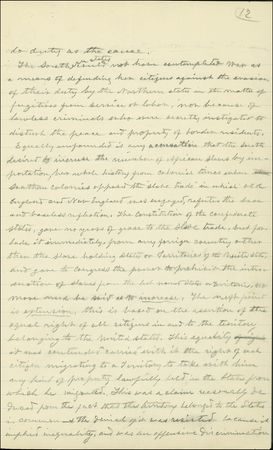 12
to duty as the cause.
The Southern States would not have contemplated war as
a means of defending her citizens against the evasion
of their duty by the Northern states in the matter of
fugitives from service or labor, nor because of
lawless criminals who were secretly instigated to
disturb the peace and property of border residents.
Equally unfounded is any accusation that the South
desired to increase the number of African slaves by im-
portation, her whole history from colonial times when
Southern colonies opposed the Slave trade in which old
England and New England was engaged refutes the base
and baseless allegation. The Constitution of the Confederate
States, gave no years of grace to the Slave trade, but for-
bade it immediately from any foreign country other
than the slave holding states or Territories of the United States,
and gave to Congress the power to prohibit the intro-
duction of slaves from the last named States or Territories, no
more need be said as to increase. The next point
is extension, this is based on the assertion of the
equal right of all citizens in and to the territory
belonging to the United States. This equality
it was contended carried with it the right of each
citizen migrating to a Territory to take with him
any kind of property lawfully held in the State from
which he migrated. This was a claim reasonably de-
duced from the fact that the territory belonged to the States
in common & the denial of it was resisted because it
implied inequality, and was an offensive discrimination